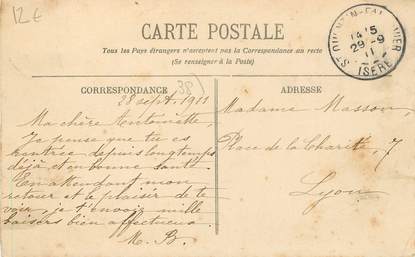 12€
CARTE POSTALE
Tous les Pays étrangers n'acceptent pas la Correspondance au recto
(Se renseigner à la Poste)
CORRESPONDANCE
38
28 sept. 1911
Ma chère Antoinette,
Je pense que tu es
rentrée depuis longtemps
déjà et en bonne santé.
En attendant mon
retour et le plaisir de te
voir, je t'envoie mille
baisers bien affectueux.
M. B.
ADRESSE
Madame Masson,
Place de la Charité, 7
Lyon
ST QUENTIN-FALLAVIER
14 15
29-9
11
ISERE